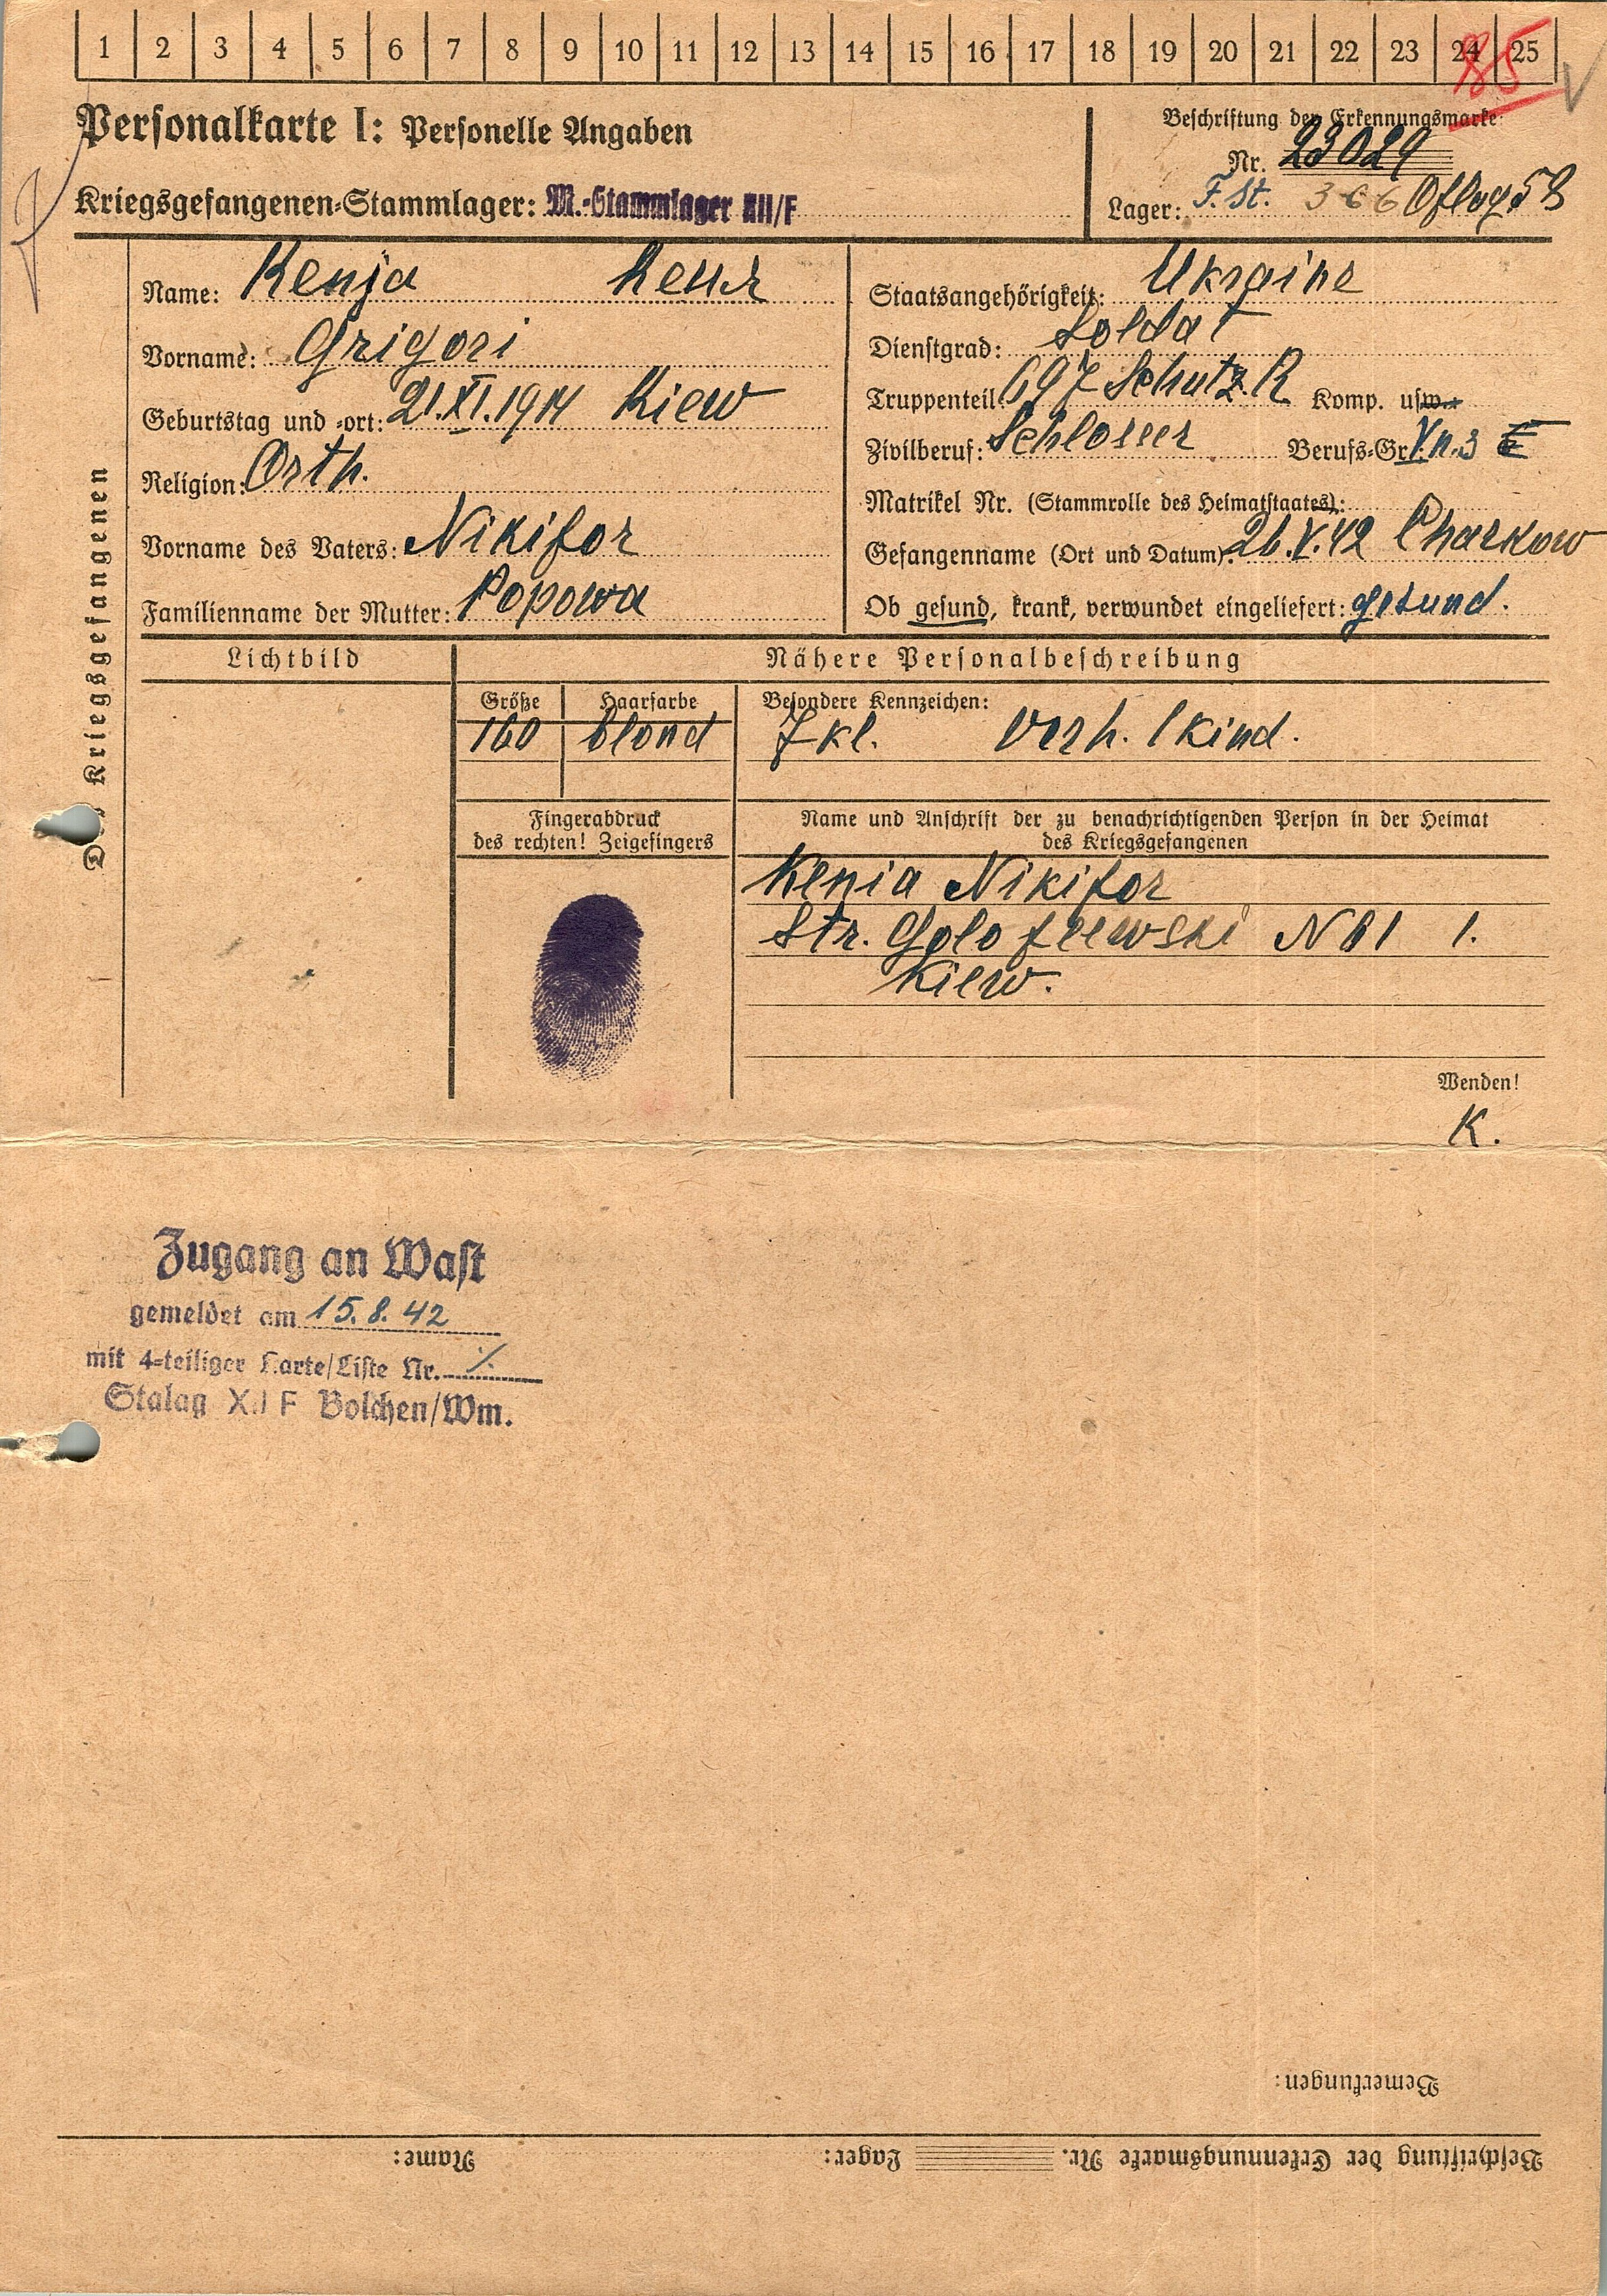 1 2 3 4 5 6 7 8 9 10 11 12 13 14 15 16 17 18 19 20 21 22 23 24 25
85
Personalkarte I: Personelle Angaben
Beschriftung der Erkennungsmarke:
Nr. 23029
Kriegsgefangenen-Stammlager: M.-Stammlager XII/F
Lager: F. St. 366 Oflag 58
Des Kriegsgefangenen
Name: Kenja
Vorname: Grigori
Geburtstag und -ort: 21.XI.1914 Kiew
Religion: Orth.
Vorname des Vaters: Nikifor
Familienname der Mutter: Popowa
Staatsangehörigkeit: Ukraine
Dienstgrad: Soldat
Truppenteil: 697 Schutz. R. Komp. usw.:
Zivilberuf: Schlosser Berufs-Gr.: V.n.3
Matrikel Nr. (Stammrolle des Heimatstaates):
Gefangenname (Ort und Datum): 26.V.42 Charkow
Ob gesund, krank, verwundet eingeliefert: gesund.
Lichtbild
Nähere Personalbeschreibung
Größe
160
Haarfarbe
blond
Besondere Kennzeichen:
7 kl. Verh. 1 kind.
Fingerabdruck
des rechten! Zeigefingers
Name und Anschrift der zu benachrichtigenden Person in der Heimat
des Kriegsgefangenen
Kenia Nikifor
Str. Golofeewski N 81 1.
Kiew.
Wenden!
K.
Zugang an Wast
gemeldet am 15. 8. 42
mit 4-teiliger Karte/Liste Nr. ./.
Stalag XII F Bolchen/Wm.
Bemerkungen:
Beschriftung der Erkennungsmarke Nr. Lager: Name: